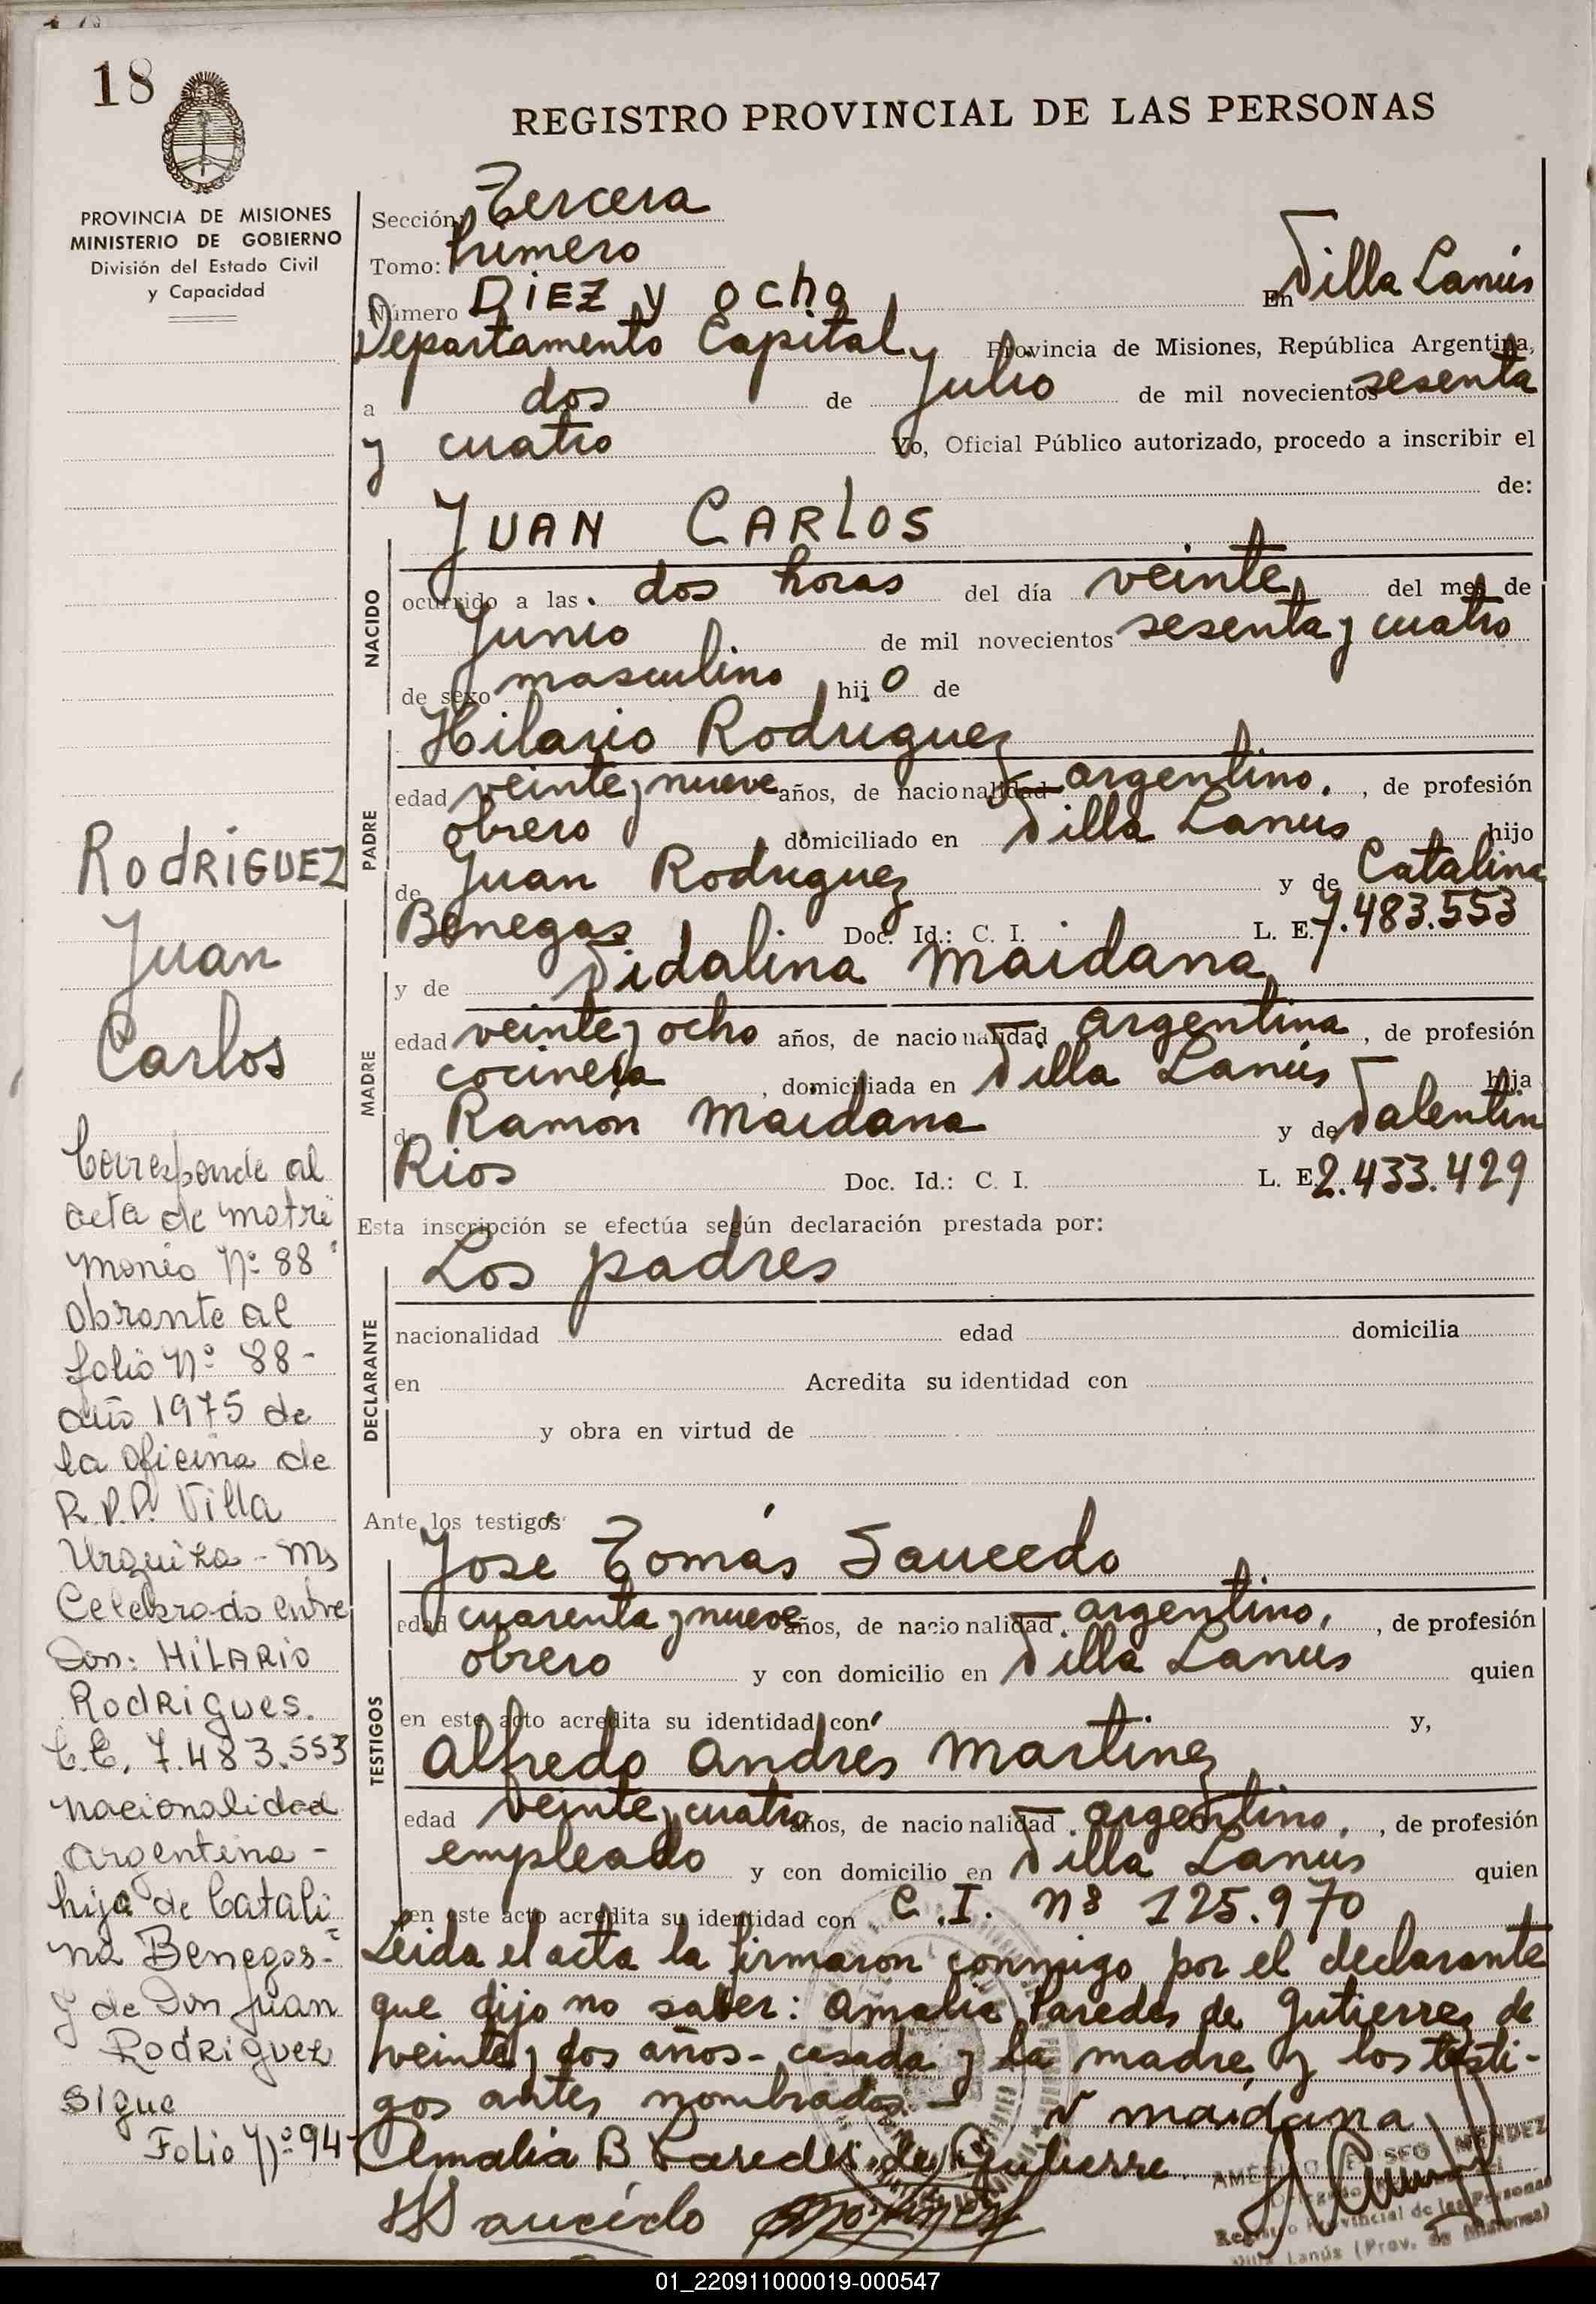 18
REGISTRO PROVINCIAL DE LAS PERSONAS
PROVINCIA DE MISIONES
MINISTERIO DE GOBIERNO
División del Estado Civil
y Capacidad
Sección: Tercera
Tomo: Primero
Número DiEZ y ocho En Villa Lanús
Departamento Capital, Provincia de Misiones, República Argentina,
a dos de Julio de mil novecientos sesenta
y cuatro Yo, Oficial Público autorizado, procedo a inscribir el
de:
JUAN CARLOS
NACIDO
ocurrido a las dos horas del día veinte del mes de
Junio de mil novecientos sesenta y cuatro
de sexo masculino hijo de
Hilario Rodriguez
PADRE
edad veinte y nueve años, de nacionalidad argentino, de profesión
obrero domiciliado en Villa Lanus hijo
de Juan Rodriguez y de Catalina
Benegas Doc. Id.: C. I. L. E. 7.483.553
MADRE
y de Vidalina Maidana
edad veinte y ocho años, de nacionalidad argentina, de profesión
cocinera, domiciliada en Villa Lanús hija
de Ramón Maidana y de Valentin
Rios Doc. Id.: C. I. L. E. 2.433.429
Esta inscripción se efectúa según declaración prestada por:
Los padres
DECLARANTE
nacionalidad edad domicilia
en Acredita su identidad con
y obra en virtud de
Ante los testigos
Jose Tomás Saucedo
TESTIGOS
edad cuarenta y nueve años, de nacionalidad argentino, de profesión
obrero y con domicilio en Villa Lanus quien
en este acto acredita su identidad con y,
Alfredo Andres Martinez
edad veinte y cuatro años, de nacionalidad argentino, de profesión
empleado y con domicilio en Villa Lanus quien
en este acto acredita su identidad con C.I. nº 125.970
Leida el acta la firmaron conmigo por el declarante
que dijo no saber: Amalia Paredes de Gutierrez de
veinte y dos años - casada y la madre y los testi-
gos antes nombrados. -
V maidana
Amalia B Paredes de Gutierre
Saucedo
MENDEZ
Registro Provincial de las Personas
Villa Lanús (Prov. de Misiones)
RodRiGUEZ
Juan
Carlos
Corresponde al
acta de matri
monio Nº 88
obrante al
folio Nº 88-
año 1975 de
la oficina de
R.P.P. Villa
Urquiza - Ms
Celebrado entre
Don: HiLARiO
Rodrigues.
L.E. 7.483.553
nacionalidad
argentina -
hijo de Catali
na Benegas-
y de Don Juan
Rodriguez
sigue
Folio Nº 94
01_220911000019-000547